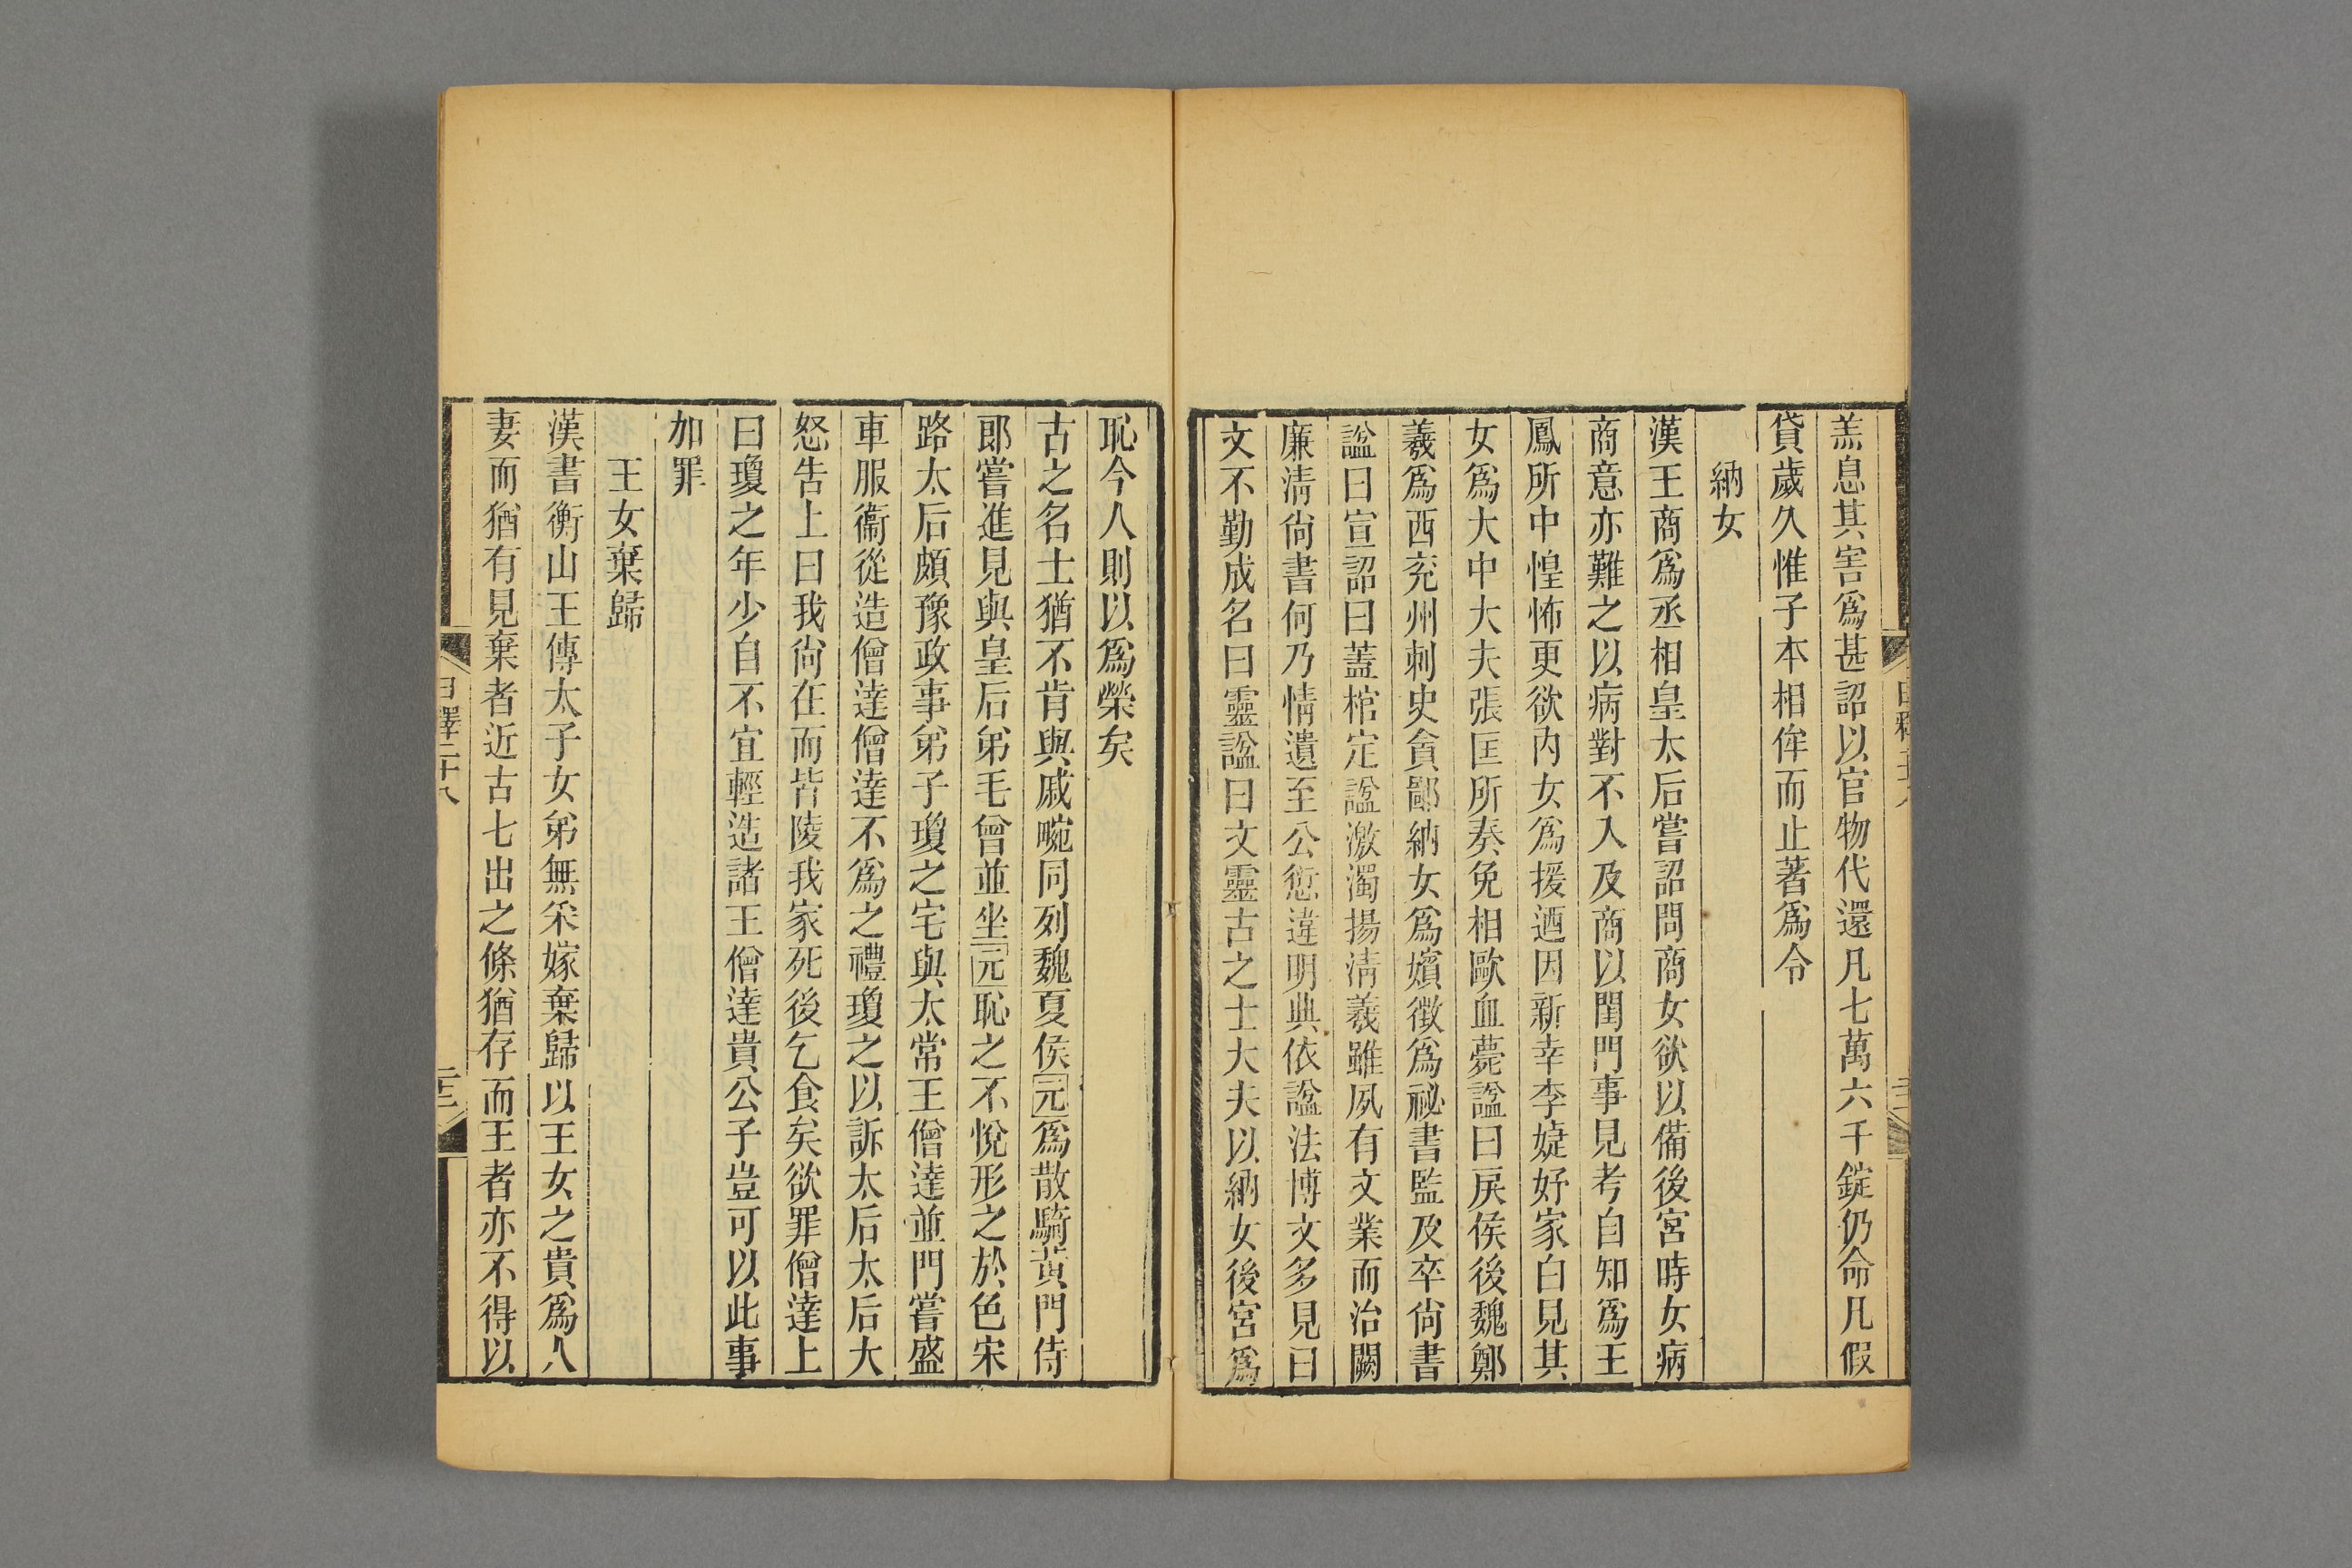 羔息其害爲甚詔以官物代還凡七萬六千錠仍命凡假
貸歲久惟子本相侔而止著爲令
納女
漢王商爲丞相皇太后嘗詔問商女欲以備後宮時女病
商意亦難之以病對不入及商以閨門事見考自知爲王
鳳所中惶怖更欲內女爲援迺因新幸李婕妤家白見其
女爲大中大夫張匡所奏免相歐血薨諡曰戾侯後魏鄭
羲爲西兖州刺史貪鄙納女爲嬪徵爲祕書監及卒尙書
諡曰宣詔曰蓋棺定諡激濁揚淸羲雖夙有文業而治闕
廉淸尙書何乃情遺至公愆違明典依諡法博文多見曰
文不勤成名曰靈諡曰文靈古之士大夫以納女後宮爲
恥今人則以爲榮矣
古之名士猶不肯與戚畹同列魏夏侯元爲散騎黃門侍
郎嘗進見與皇后弟毛曾並坐元恥之不悅形之於色宋
路太后頗豫政事弟子瓊之宅與太常王僧達並門嘗盛
車服衞從造僧達僧達不爲之禮瓊之以訴太后太后大
怒告上曰我尙在而皆陵我家死後乞食矣欲罪僧達上
曰瓊之年少自不宜輕造諸王僧達貴公子豈可以此事
加罪
王女棄歸
漢書衡山王傳太子女弟無采嫁棄歸以王女之貴爲人
妻而猶有見棄者近古七出之條猶存而王者亦不得以
日釋二十八